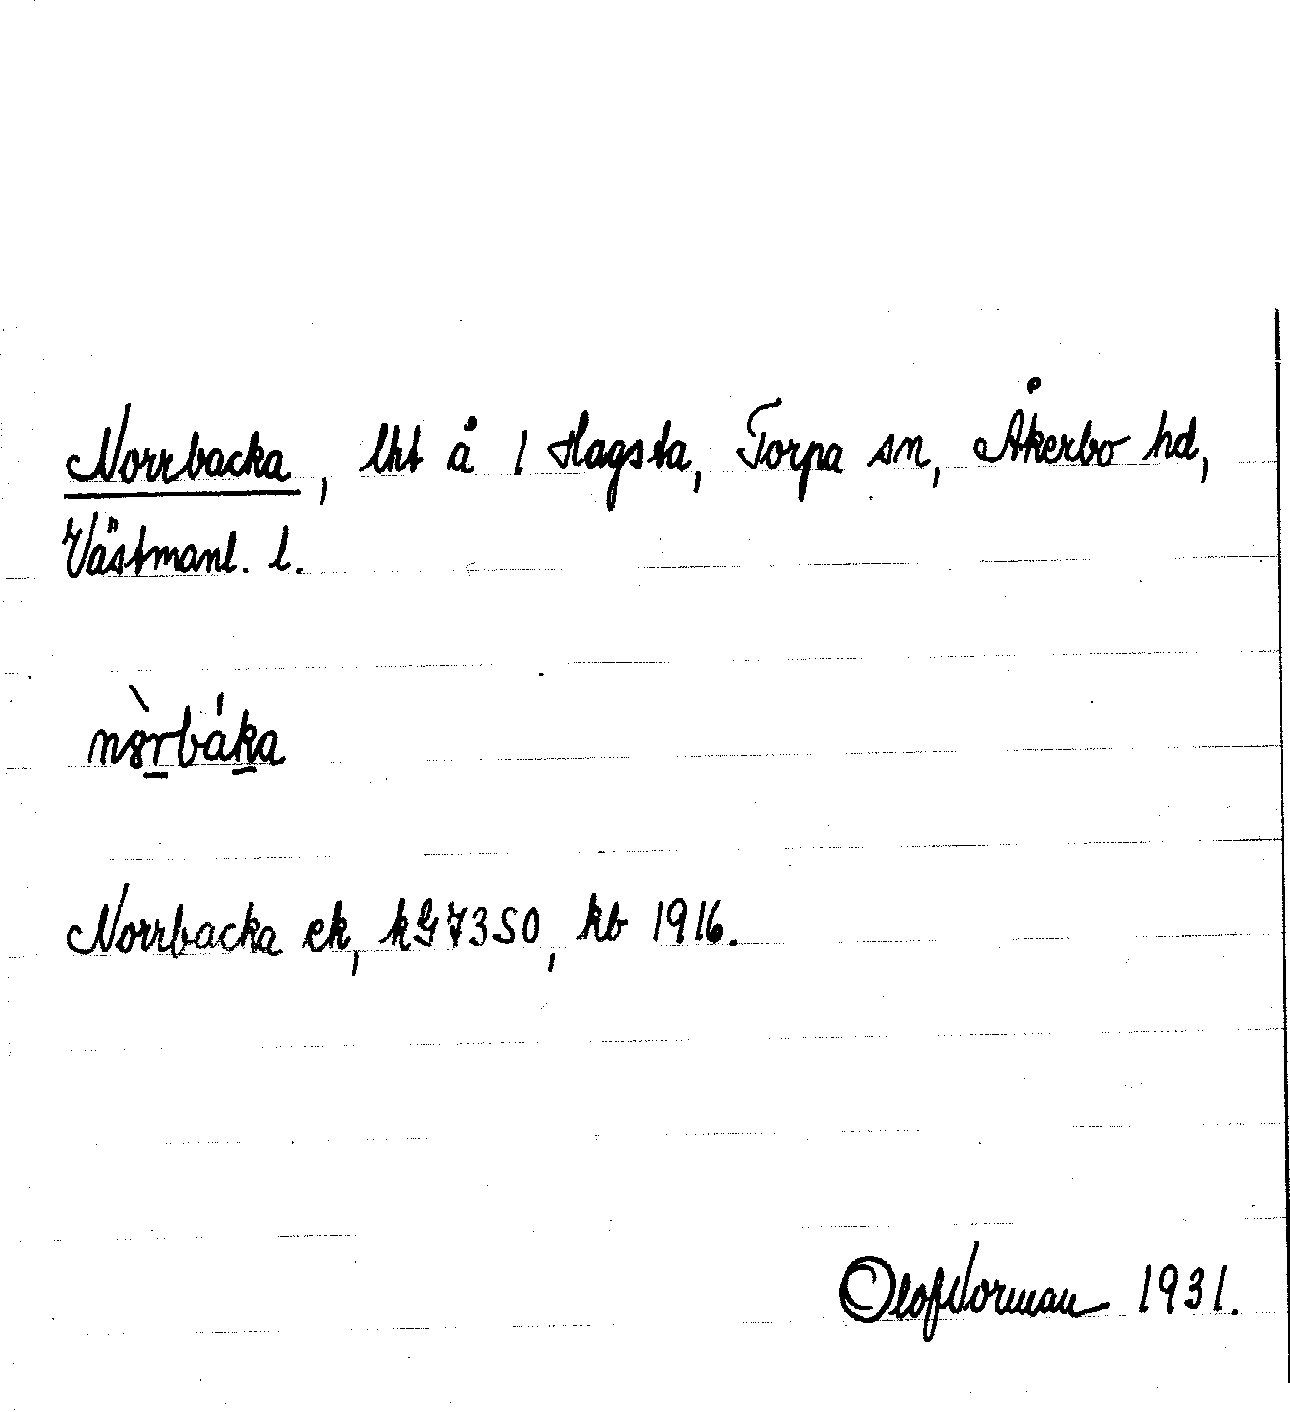 Norrbacka, lht å 1 Hagsta, Torpa sn, Åkerbo hd,
Västmanl. l.
n8̀r̲bák̲a
Norrbacka ek, kG7350, kb 1916.
Olof Norman 1931.